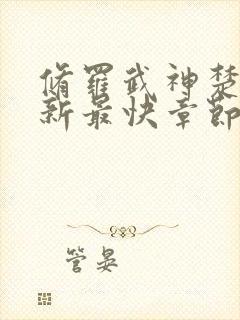 脩羅武神楚
新最快章節
管晏